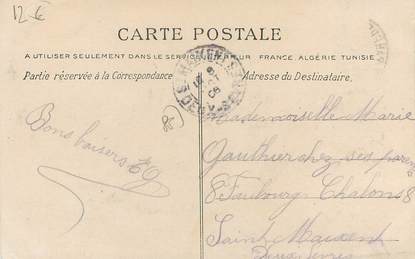 12.€
CARTE POSTALE
A UTILISER SEULEMENT DANS LE SERVICE INTÉRIEUR — FRANCE, ALGÉRIE, TUNISIE
Partie réservée à la Correspondance
Adresse du Destinataire.
85
Bons baisers
Mademoiselle Marie
Gauthier chez ses parents
8 Faubourg Chalons 8
Saint Maixent
Deux Sèvres